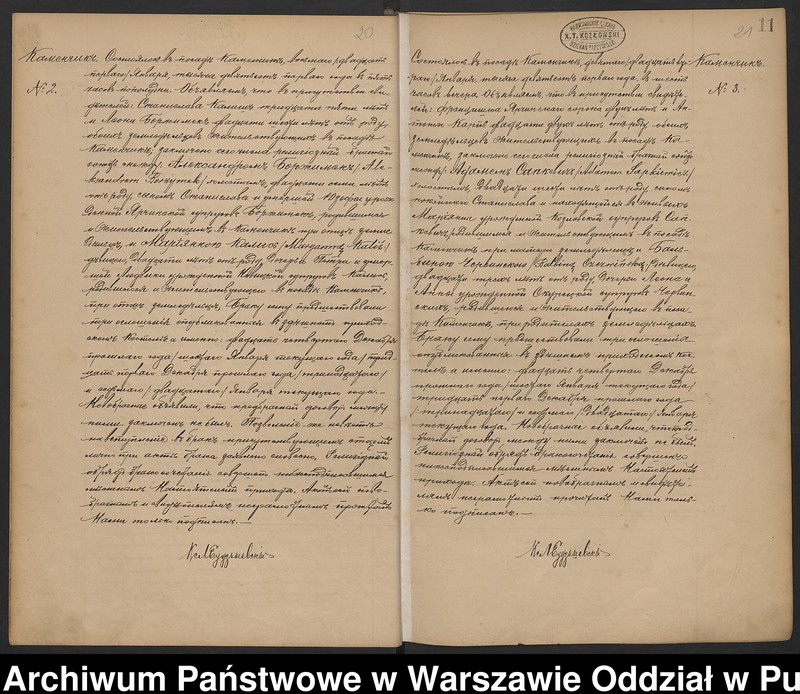 20
Каменчикъ.
№ 2.
Состоялось въ посадѣ Каменчикѣ, восьмаго /двадцать
перваго/ Января, тысяча девятьсотъ перваго года въ пять
часовъ пополудни. Объявляемъ, что въ присутствіи сви-
дѣтелей: Станислава Калиша тридцати пяти лѣтъ
и Леона Боржимека двадцати шести лѣтъ отъ роду,
обоихъ земледѣльцевъ жительствующихъ въ посадѣ
Каменчикѣ, заключенъ сегодня религіозный брачный
союзъ между: Александромъ Боржимекъ /Ale-
ksandrem Borzymek/ холостымъ, двадцати семи лѣтъ
отъ роду, сыномъ Станислава и умершей Юзефы урож-
денной супруговъ Боржимекъ, родившимся
и жительствующимъ въ Каменчикѣ при отцѣ земле-
дѣльцѣ, и Маріанною Калишъ
дѣвицею, двадцати лѣтъ отъ роду, дочерью Петра и умер-
шей Людвики урожденной супруговъ Калишъ,
родившеюся и жительствующею въ посадѣ Каменчикѣ,
при отцѣ земледѣльцѣ. Браку сему предшествовали
три оглашенія опубликованныя въ здѣшнемъ приход-
скомъ Костелѣ а именно: двадцать четвертаго Декабря
прошлаго года /шестаго Января текущаго года/ трид-
цать перваго Декабря прошлаго года /тринадцатаго/
и седьмаго /двадцатаго/ Января текущаго года.—
Новобрачные объявили, что предбрачный договоръ между
ними заключенъ не былъ. Позволеніе же невѣстѣ
на вступленіе въ бракъ присутствующимъ отцемъ
при актѣ брака дано словесно. Религіозный
обрядъ бракосочетанія совершенъ нижеподписавшимся
прихода. Актъ сей ново-
брачнымъ и свидѣтелямъ неграмотнымъ прочитанъ
Нами только подписанъ.—
21
11
X. T. KOZŁOWSKI
Каменчикъ.
№ 3.
Состоялось въ посадѣ Каменчикѣ, девятаго /двадцать вто-
раго/ Января, тысяча девятьсотъ перваго года, въ шесть
часовъ вечера. Объявляемъ, что въ присутствіи свидѣте-
лей: Францишка сорока двухъ лѣтъ и Ан-
тонія двадцати двухъ лѣтъ отъ роду, обоихъ
земледѣльцевъ жительствующихъ въ посадѣ Ка-
менчикѣ, заключенъ сегодня религіозный брачный союзъ
между: Адамомъ Сапкевичъ /Adam Sapkiewicz/
холостымъ, двадцати шести лѣтъ отъ роду, сыномъ
покойнаго Станислава и находящейся въ живыхъ
Маріанны урожденной Козловской супруговъ Сап-
кевичъ, родившимся и жительствующимъ въ посадѣ
Каменчикѣ при матери земледѣлицѣ, и Баль-
биною Червинскою дѣвицею,
двадцати трехъ лѣтъ отъ роду, дочерью Леона и
Анны урожденной супруговъ Червин-
скихъ, родившеюся и жительствующею въ поса-
дѣ Каменчикѣ, при родителяхъ земледѣльцахъ.
Браку сему предшествовали три оглашенія
опубликованныя въ здѣшнемъ приходскомъ Кос-
телѣ а именно: двадцать четвертаго Декабря
прошлаго года /шестаго Января текущаго года/
тридцать перваго Декабря прошлаго года
/тринадцатаго/ и седьмаго /двадцатаго/ Января
текущаго года. Новобрачные объявили, что пред-
брачный договоръ между ними заключенъ не былъ.
Религіозный обрядъ бракосочетанія совершенъ
нижеподписавшимся
прихода. Актъ сей новобрачнымъ и свидѣте-
лямъ неграмотнымъ прочитанъ Нами толь-
ко подписанъ.—
Archiwum Państwowe w Warszawie Oddział w Pu